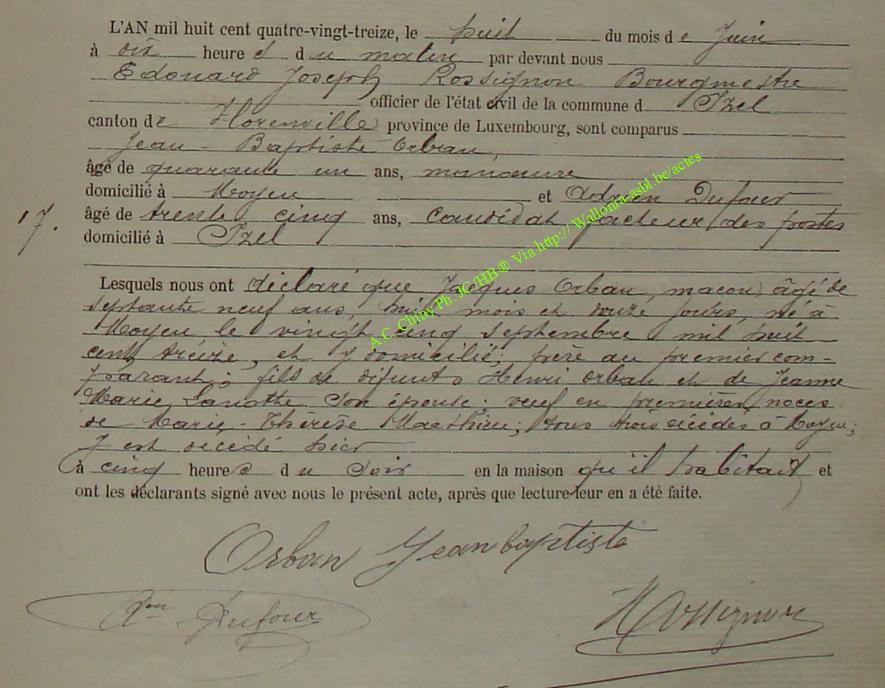 L'AN mil huit cent quatre-vingt-treize, le huit du mois de Juin
à dix heures du matin par devant nous
Edouard Joseph Rossignon Bourgmestre
officier de l'état civil de la commune d Izel
canton de Florenville province de Luxembourg, sont comparus
Jean-Baptiste Orban,
âgé de quarante un ans, manœuvre
domicilié à Moyen et Adrien Dufour
17. âgé de trente cinq ans, candidat facteur des postes
domicilié à Izel
Lesquels nous ont déclaré que Jacques Orban, maçon, âgé de
septante neuf ans, huit mois et douze jours, né à
Moyen le vingt cinq septembre mil huit
cent treize, et y domicilié; père au premier com-
parant; fils de défunts Henri Orban et de Jeanne
Marie Lanothe son épouse; veuf en premières noces
de Marie-Thérèse Maethieu; tous trois décédés à Moyen;
y est décédé hier
à cinq heures du soir en la maison qu'il habitait et
ont les déclarants signé avec nous le présent acte, après que lecture leur en a été faite.
Orban Jeanbaptiste
Aen Dufour Rossignon
A.C. Chiny Ph. JC/HB® Via http://Wallonia-asbl.be/actes